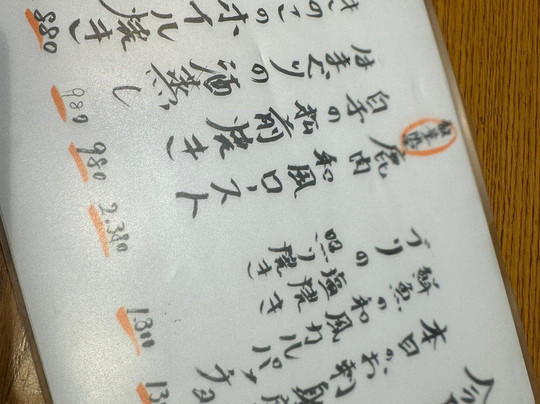 本日のお刺身
鮮魚の和風カルパッチョ
ブリの
塩焼き
照り焼き
1.300
鹿肉和風ロースト
2.380
白子の松前焼き
980
はまぐりの酒蒸し
980
きのこのホイル焼き
880